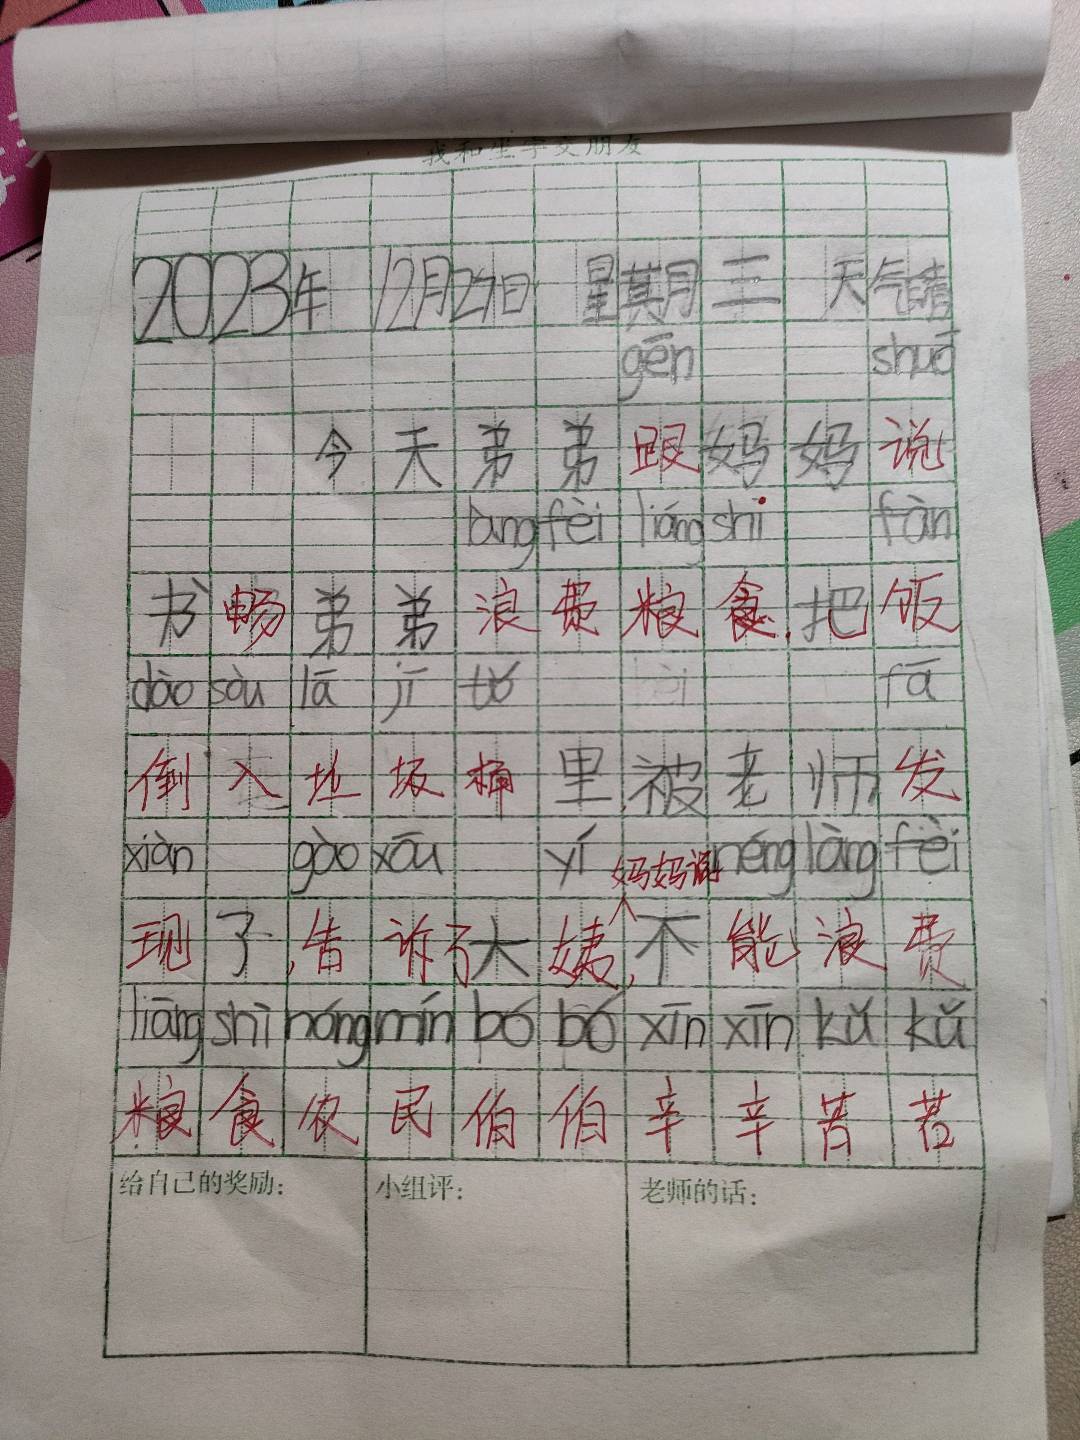 我和生字交朋友
2023年 12月27日 星期月三 天气晴
gēn shuō
今天弟弟跟妈妈说
làng fèi liáng shi fàn
书畅弟弟浪费粮食,把饭
dào sàu lā jī tǒ fā
倒入垃圾桶里,被老师发
xiàn gào xōu yí néng làng fèi
妈妈说
现了,告诉了大姨,不能浪费
liāng shī nóng mín bó bó xīn xīn kǔ kǔ
粮食农民伯伯辛辛苦苦
给自己的奖励: 小组评: 老师的话: